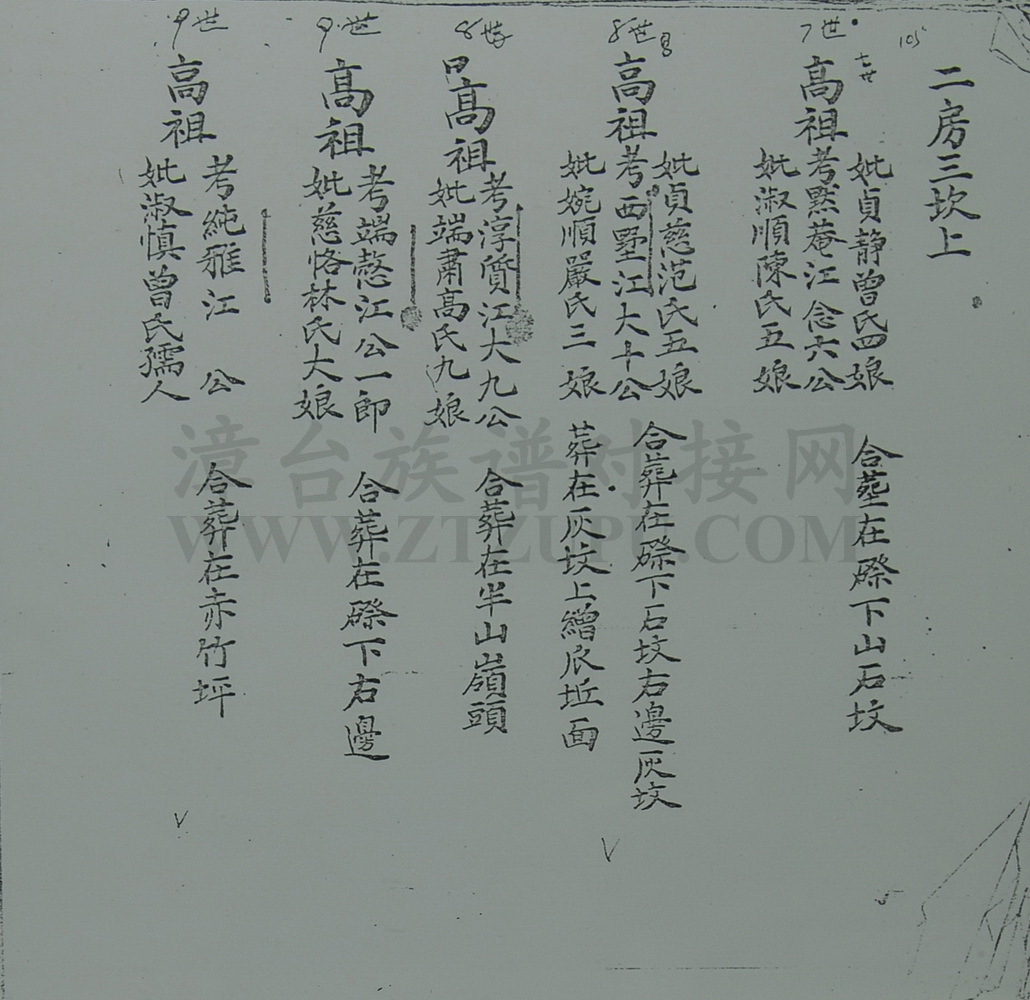 105
二房三坎上
7世
七世
高祖
妣貞靜曾氏四娘
考黙菴江念六公
妣淑順陳氏五娘
合塟在際下山石坟
8世
高祖
妣貞慈范氏五娘
考西墅江大十公
妣婉順嚴氏三娘
合葬在際下石坟右邊灰坟
葬在灰坟上繒坵面
8世
甲
高祖
考淳質江大九公
妣端肅高氏九娘
合葬在半山嶺頭
9世
高祖
考端慤江公一郎
妣慈恪林氏大娘
合葬在際下右邊
9世
高祖
考純雅江 公
妣淑慎曾氏孺人
合葬在赤竹坪
漳台族谱对接网
WWW.ZTZUPU.COM